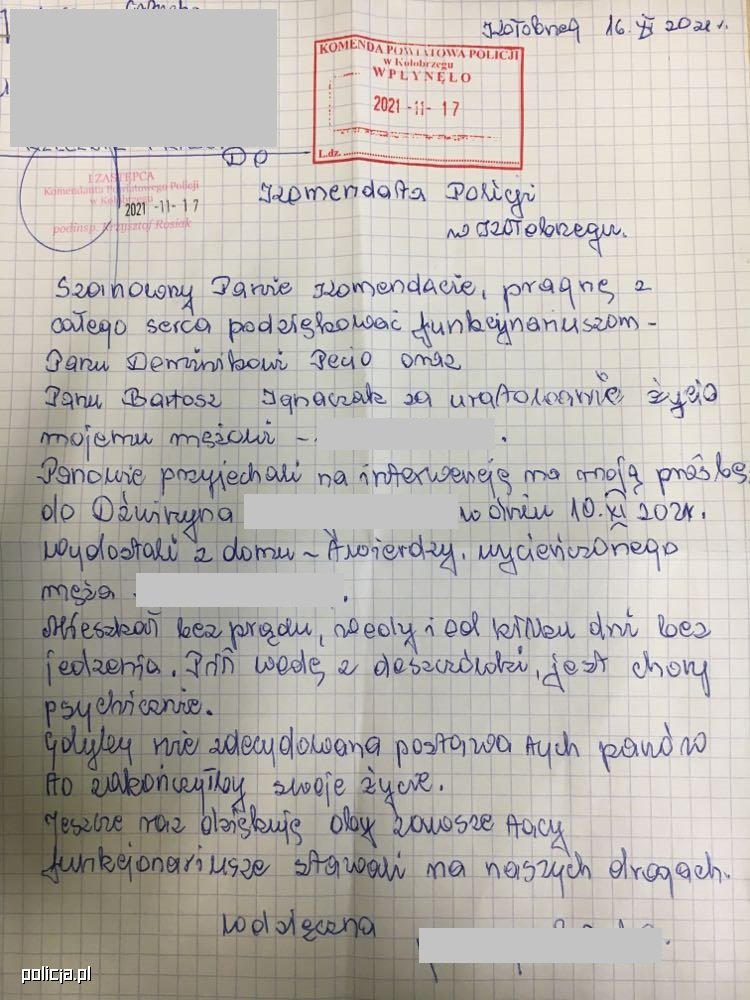 Kołobrzeg 16.XI 2021r.
KOMENDA POWIATOWA POLICJI
w Kołobrzegu
WPŁYNĘŁO
2021 -11- 17
L.dz.
I ZASTĘPCA
Komendanta Powiatowego Policji
w Kołobrzegu
2021 -11- 17
podinsp. Krzysztof Rosiak
DO
Komendata Policji
w Kołobrzegu.
Szanowny Panie Komendacie, pragnę z
całego serca podziękować funkcjnariuszom -
Panu Dominikowi Pecio oraz
Panu Bartosz Ignaczak za uratowanie życia
mojemu mężowi -
Panowie przyjechali na interwencję na moją prośbę
do Dźwirzyna w dniu 10.XI 2021r.
wydostali z domu - twierdzy, wycieńczonego
męża
Mieszkał bez prądu, wody i od kilku dni bez
jedzenia. Pił wodę z deszczówki, jest chory
psychicznie.
Gdyby nie zdecydowana postawa tych panów
to zakończyłby swoje życie.
Jeszcze raz dziękuję oby zawsze tacy
funkcjonariusze stawali na naszych drogach.
wdzięczna
policja.pl